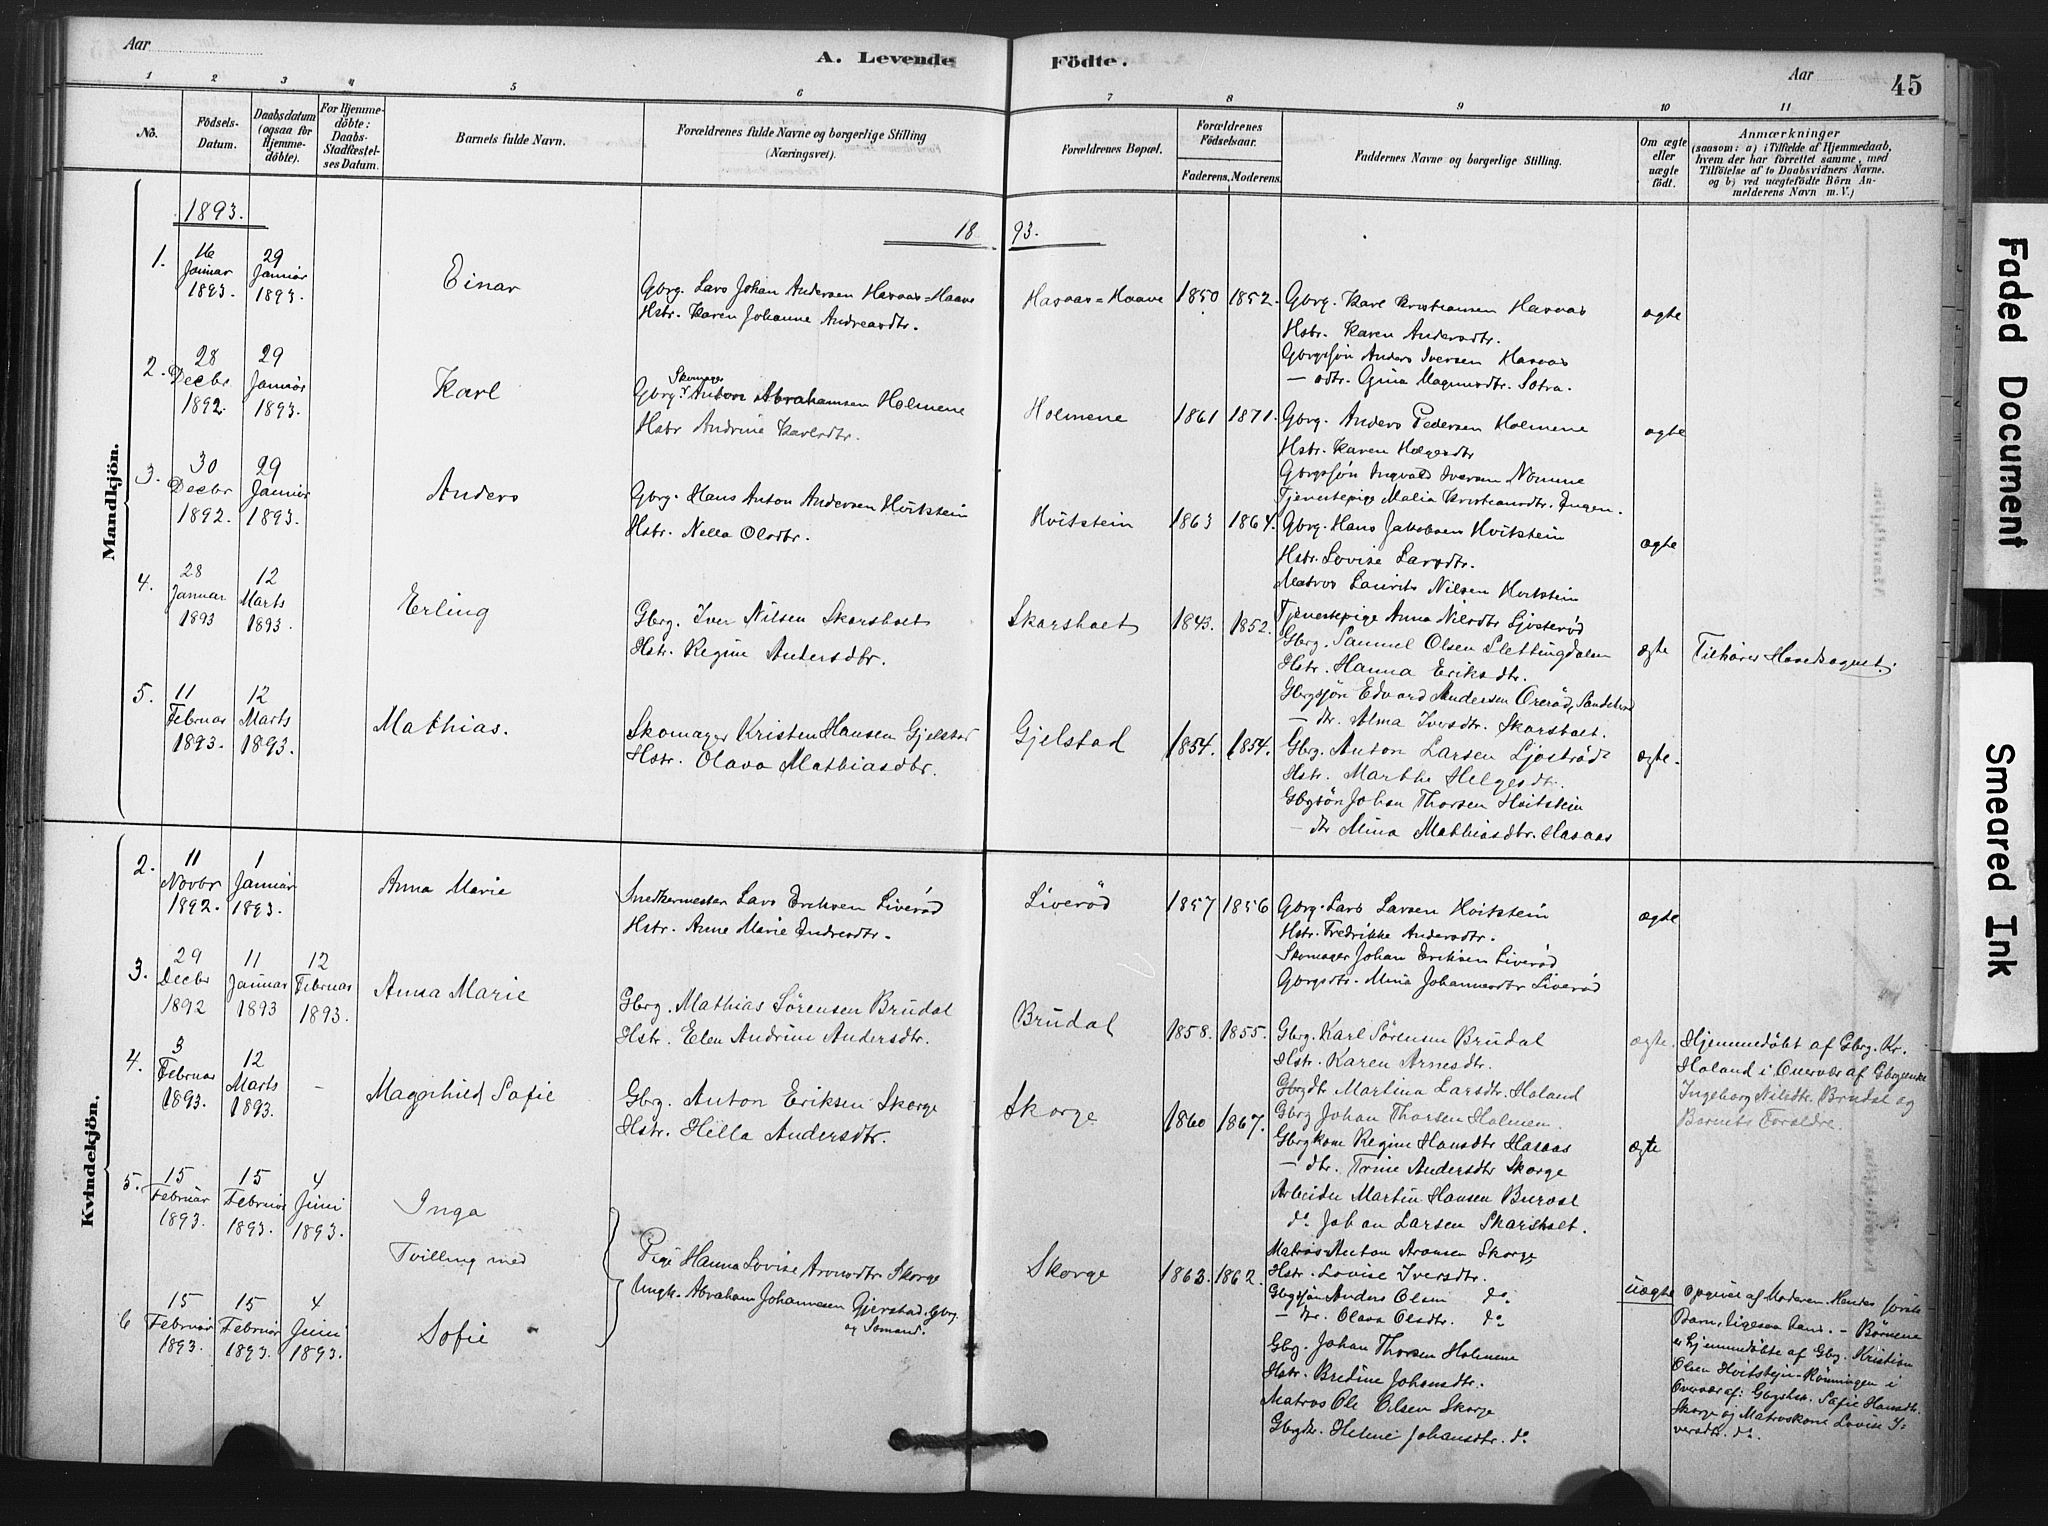 Aar
A. Levende Födte.
Aar
45
1 2 3 4 5 6 7 8 9 10 11
No.
Födsels-Datum.
Daabsdatum (ogsaa for Hjemmedöbte).
For Hjemmedöbte: Daabs-Stadfæstelses Datum.
Barnets fulde Navn.
Forældrenes fulde Navne og borgerlige Stilling (Næringsvei).
Forældrenes Bopæl.
Forældrenes Födselsaar.
Faderens. Moderens.
Faddernes Navne og borgerlige Stilling.
Om ægte eller uægte födt.
Anmærkninger
(saasom: a) i Tilfælde af Hjemmedaab,
hvem der har forrettet samme, med
Tilföielse af to Daabsvidners Navne.
og b) ved uægtefödte Börn An-
melderens Navn m. V.)
Mandkjön.
1893.
18 93.
1.
16 Januar 1893.
29 Januar 1893.
Einar
Gbrg. Lars Johan Andersen Havaas=Haave
Hstr. Karen Johanne Andreasdtr.
Havaas=Haave
1850 1852.
Gbrg. Karl Kristiansen Havaas
Hstr. Karen Andersdtr.
Gbrgssøn Anders Iversen Havaas
— adtr. Gina Magnusdtr. Sotra.
ægte
2.
28 Decbr 1892.
29 Januar 1893.
Karl
Skomager
Gbrg. Anton Abrahamsen Holmene
Hstr Andrine Karlsdtr.
Holmene
1861 1871.
Gbrg. Anders Pedersen Holmene
Hstr. Karen Helgesdtr
Gbrgssøn Ingvald Iversen Nomme
Tjenestepige Malia Kristiansdtr. Engen.
ægte
3.
30 Decbr 1892.
29 Januar 1893.
Anders
Gbrg. Hans Anton Andersen Hvitstein
Hstr. Nella Olsdtr.
Hvitstein
1863 1864.
Gbrg. Hans Jakobsen Hvitstein
Hstr. Lovise Larsdtr.
Matros Laurits Nilsen Hvitstein
Tjenestepige Anna Nilsdtr Ljosterød
ægte
4.
28 Januar 1893
12 Marts 1893.
Erling
Gbrg. Iver Nilsen Skarsholt
Hstr. Regine Andersdtr.
Skarsholt
1843. 1852.
Gbrg. Samuel Olsen Slettingdalen
Hstr. Hanna Eriksdtr.
Gbrgsjøn Edvard Andersen Orerød, Sandeherad
— dtr. Alma Iversdtr. Skarsholt.
ægte
Tilhører Hovedsognet.
5.
11 Februar 1893.
12 Marts 1893.
Mathias.
Skomager Kristen Hansen Gjelstad
Hstr. Olava Mathiasdtr.
Gjelstad
1854. 1854.
Gbrg. Anton Larsen Ljostrød
Hstr. Marthe Helgesdtr.
Gbgsøn Johan Thorsen Hvitstein
— dtr Mina Mathiasdtr. Havaas
ægte.
Kvindekjön.
2.
11 Novbr 1892.
1 Januar 1893.
Anna Marie
Snedkermester Lars Eriksen Liverød
Hstr. Anne Marie Andreasdtr.
Liverød
1857 1856
Gbrg. Lars Larsen Hvitstein
Hstr. Fredrikke Andersdtr.
Skomager Johan Eriksen Liverød
Gbrgsdtr. Mina Johannesdtr Liverød
ægte
3.
29 Decbr 1892
11 Januar 1893
12 Februar 1893.
Anna Marie
Gbrg. Mathias Sørensen Brudal
Hstr. Elen Andrine Andersdtr.
Brudal
1858. 1855.
Gbrg. Karl Sørensen Brudal
Hstr. Karen Arnesdtr.
Gbrgdtr Martina Larsdtr. Holand
Gbrg Johan Thorsen Holmen.
ægte.
Hjemmedøbt af Gbrg. Kr.
Holand i Overvær af Gbrgenke
Ingeborg Nilsdtr. Brudal og
Barnets Forældre.
4.
3 Februar 1893.
12 Marts 1893.
-
Magnhild Sofie
Gbrg. Anton Eriksen Skorge
Hstr. Hella Andersdtr.
Skorge
1860 1867.
Gbrgkone Regine Hansdtr Havaas
— dtr. Trine Andersdtr Skorge
Arbeider Martin Hansen Burvol
do Johan Larsen Skarsholt.
ægte
5.
15 Februar 1893.
15 Februar 1893.
4 Juni 1893.
Inga
Tvilling med
6
15 Februar 1893.
15 Februar 1893.
4 Juni 1893.
Sofie
Pige Hanna Lovise Aronsdtr Skorge
Ungk. Abraham Johannesen Gjerstad, Gbrg.
og Sømand.
Skorge
1863. 1862.
Matros Anton Aronsen Skorge
Hstr. Lovise Iversdtr.
Gbgsjøn Anders Olsen do
— dtr. Olava Olsdtr. do
Gbg. Johan Thorsen Holmene
Hstr. Bredine Johansdtr.
Matros Ole Olsen Skorge
Gbrgdtr. Helene Johansdtr. do
uægte
Opgivet af Moderen. Hendes første
Barn, ligesaa hans. — Børnene
er hjemmedøbte af Gbg. Kristian
Olsen Hvitstein-Rønningen i
Overvær af: Gbgsk. Sofie Hansdtr.
Skorge og Matroskone Lovise I-
versdtr. do
Faded Document
Smeared Ink